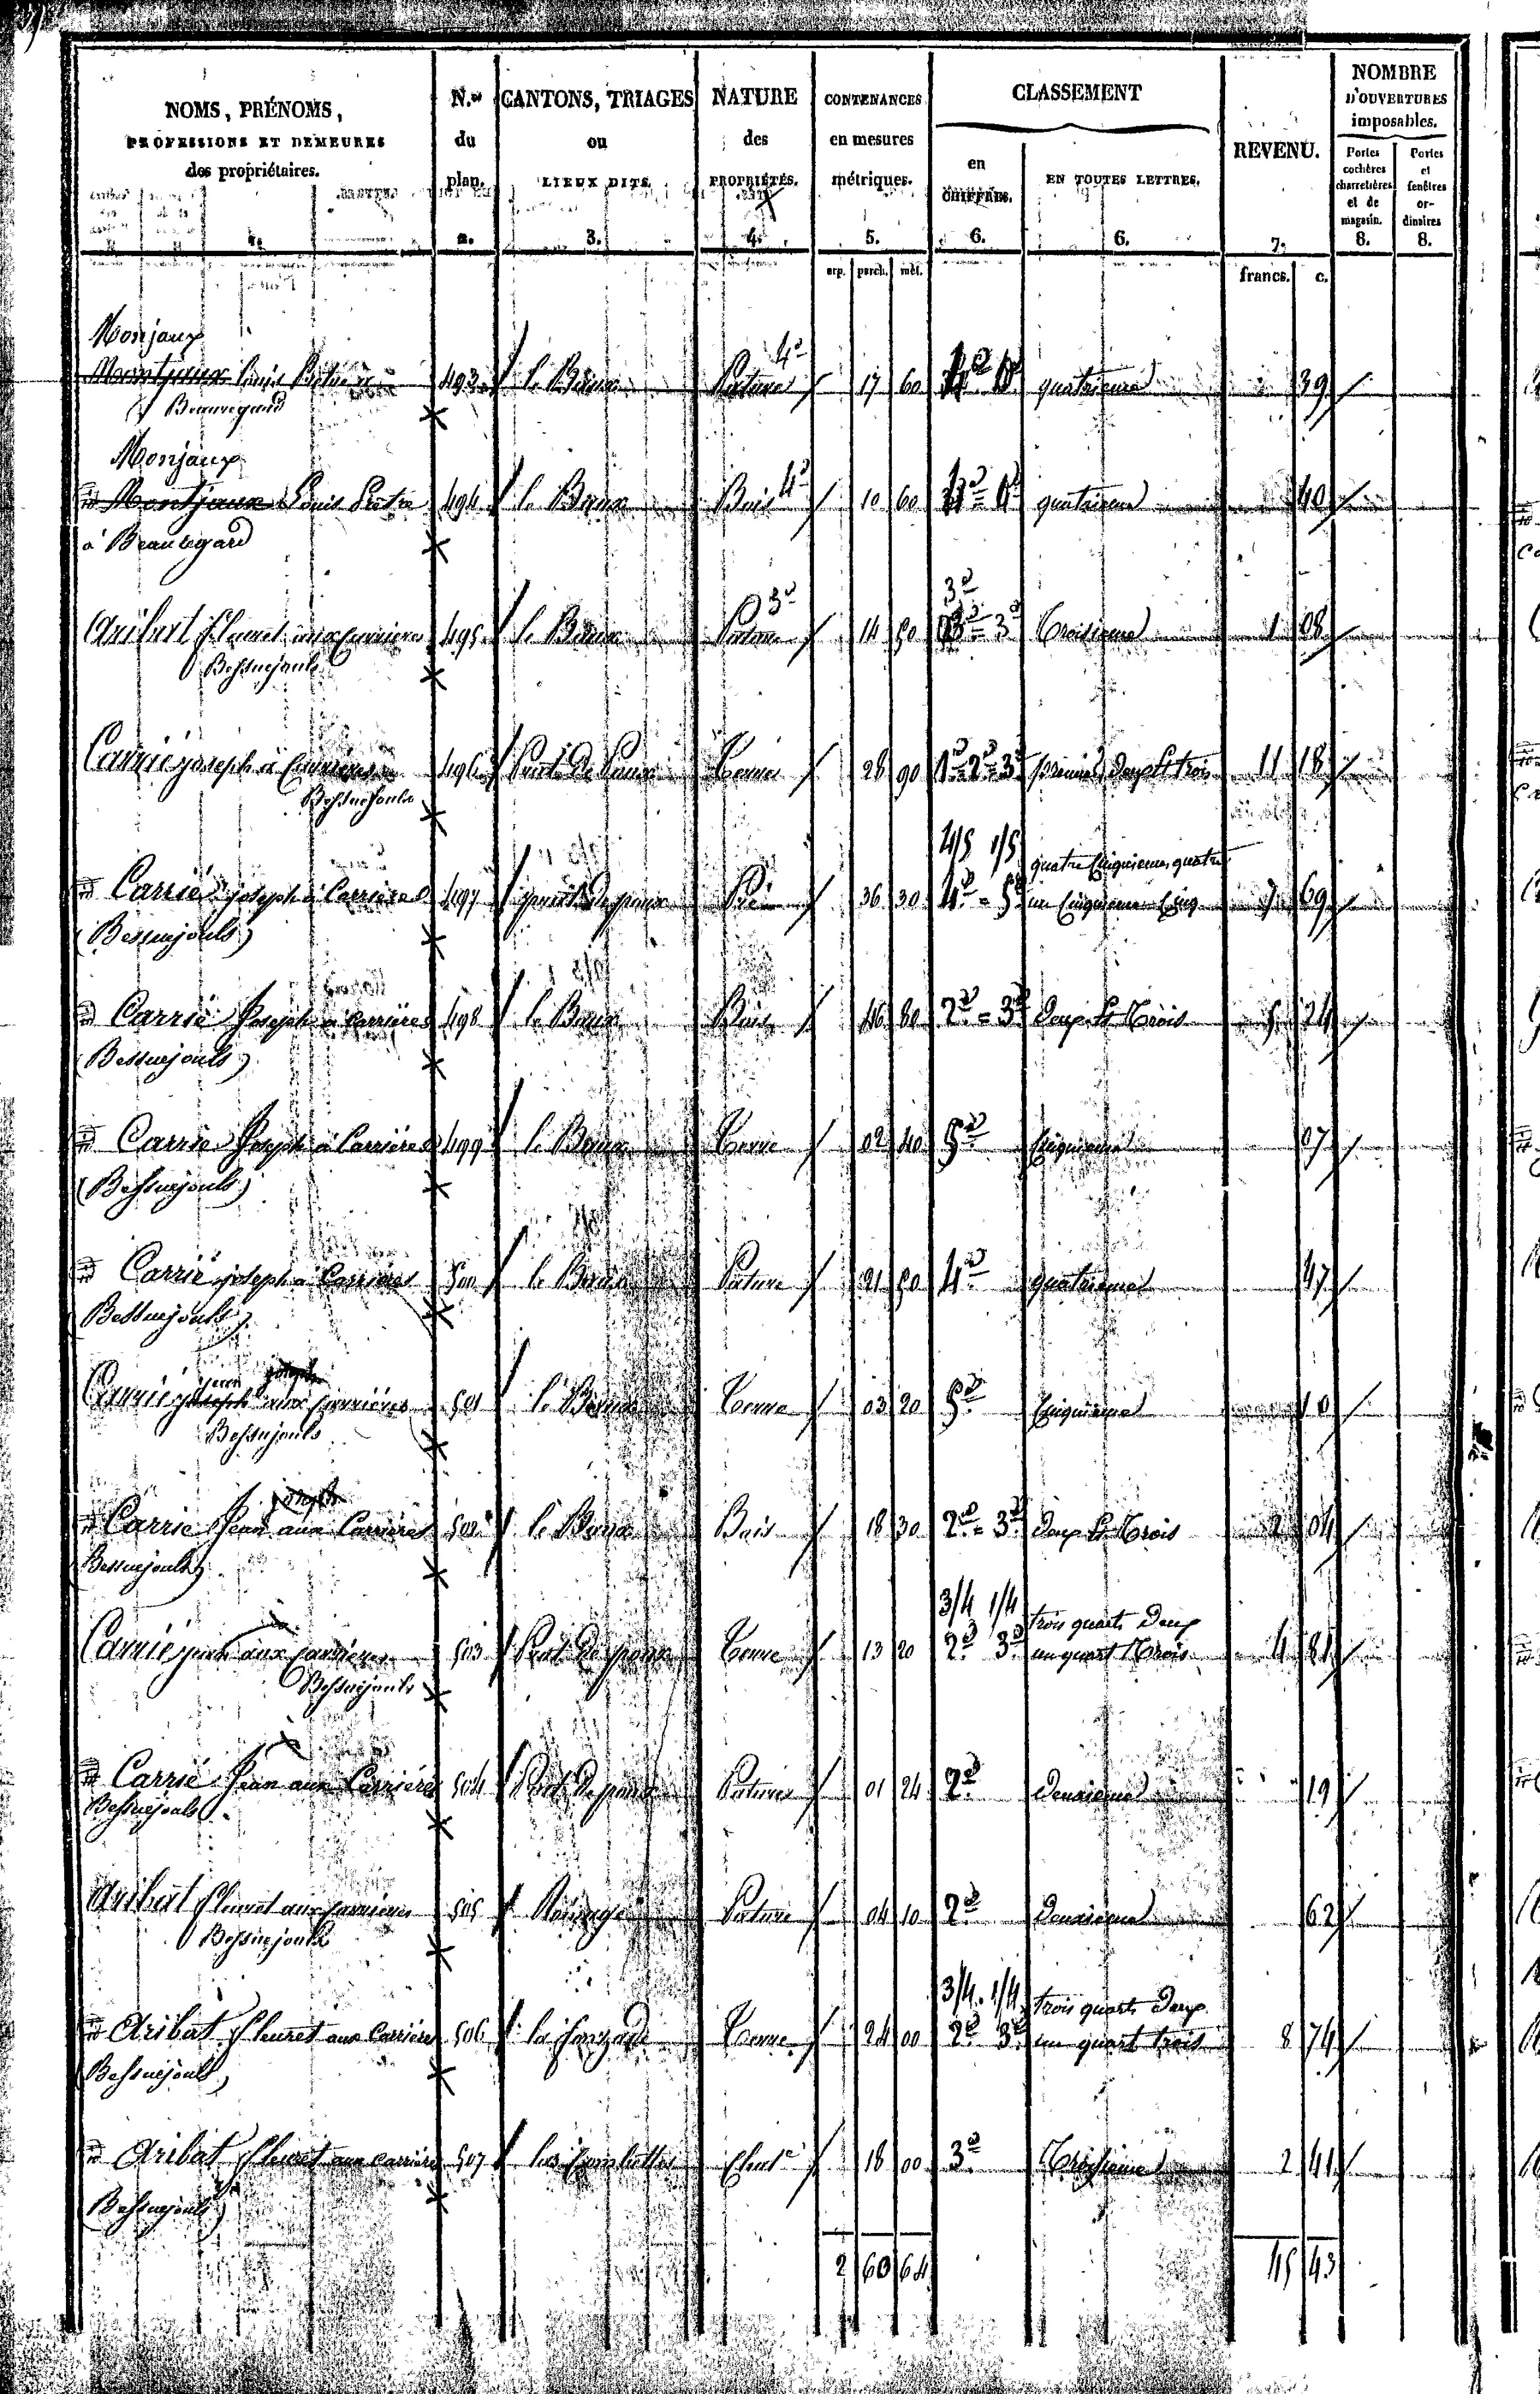 NOMS, PRÉNOMS, PROFESSIONS ET DEMEURES des propriétaires. 1.
N.os du plan. 2.
CANTONS, TRIAGES ou LIEUX DITS. 3.
NATURE des PROPRIÉTÉS. 4.
CONTENANCES en mesures métriques. 5.
CLASSEMENT
en CHIFFRES. 6.
EN TOUTES LETTRES. 6.
REVENU. 7.
NOMBRE D'OUVERTURES imposables.
Portes cochères charretières et de magasin. 8.
Portes et fenêtres ordinaires 8.
arp. perch. mèt. francs. c.
Monjaux
Montjaux Louis 493 Pature 4e 17 60 quatrieme 39
Beauregard
Monjaux
Montjaux Louis 494 Bois 4e 10 60 quatrieme 40
à Beauregard
Aribert Fleuret aux Carrieres 495 Pature 3e 14 50 3e Troisieme 1 08
Bessuejouls
Carrié joseph à Carrieres 496 Terre 28 90 1e = 2e = 3e premier Deux et trois 11 18
Bessuejouls
4/5 1/5 quatre Cinquieme, quatre
Carrié joseph à Carrieres 497 Pré 36 30 4e = 5e un Cinquieme Cinq 7 69
(Bessuejouls)
Carrié Joseph à Carrières 498 Bois 46 60 2e = 3e Deux et Trois 5 24
(Bessuejouls)
Carrié Joseph à Carrières 499 Terre 02 40 5e Cinquieme 07
(Bessuejouls)
Carrié joseph à Carrieres 500 Pature 21 50 4e quatrieme 47
Bessuejouls
jean
Carrié joseph aux Carrières 501 Terre 03 20 5e Cinquieme 10
Bessuejouls
Carrié Jean aux Carrieres 502 Bois 18 30 2e = 3e Deux et Trois 2 04
Bessuejouls
3/4 1/4 trois quarts Deux
Carrié jean aux Carrieres 503 Terre 13 20 2e 3e un quart Trois 4 81
Bessuejouls
Carrié Jean aux Carrieres 504 Pature 01 24 2e Deuxieme 19
Bessuejouls
Aribert Fleuret aux Carrieres 505 Pature 04 10 2e Deuxieme 62
Bessuejouls
3/4 1/4 trois quarts Deux
Aribat Fleuret aux Carrieres 506 Terre 24 00 2e 3e un quart trois 8 74
Bessuejouls
Aribat Fleuret aux Carrieres 507 18 00 3e Troisieme 2 41
(Bessuejouls)
2 60 64 45 43